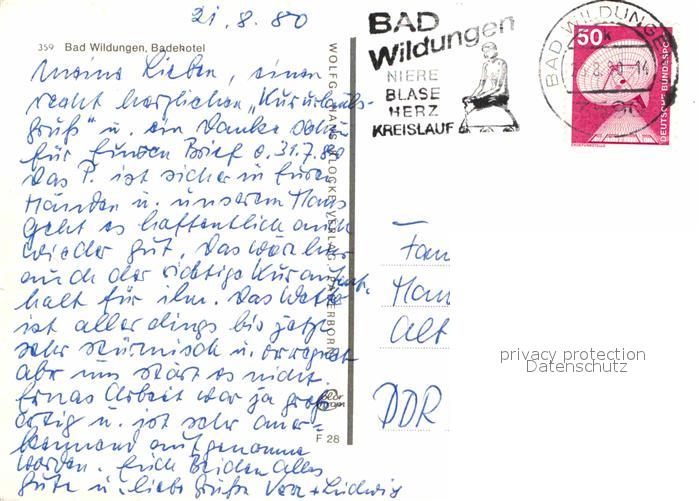 21.8.80
359 Bad Wildungen, Badehotel
Meine Lieben, einen
recht herzlichen „Kururlaubs-
gruß" u. ein Danke schön
für Euren Brief v. 31.7.80
Das P. ist sicher in Euren
Händen u. unserem Hans
geht es hoffentlich auch
wieder gut. Das wär hier
auch der richtige Kuraufent-
halt für ihn. Das Wetter
ist allerdings bis jetzt
sehr stürmisch u. verregnet
aber uns stört es nicht.
Ernas Arbeit war ja groß-
artig u. ist sehr aner-
kennend aufgenommen
worden. Euch Beiden alles
Gute u. liebe Grüße Vera + Ludwig
WOLFGANG VERLAG PADERBORN
color
F 28
BAD
Wildungen
NIERE
BLASE
HERZ
KREISLAUF
BAD WILDUNGEN
.8.80-14
50
DEUTSCHE BUNDESPOST
Fam
Han
Alt
DDR
privacy protection
Datenschutz